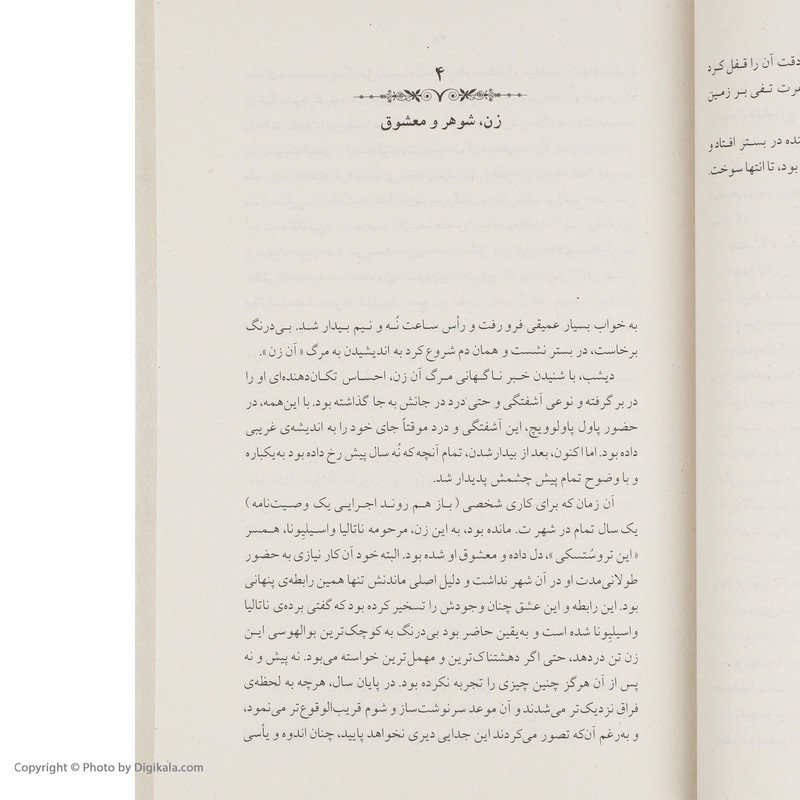 ۴
زن، شوهر و معشوق
به خواب بسیار عمیقی فرو رفت و رأس ساعت نُه و نیم بیدار شد. بی‌درنگ
برخاست، در بستر نشست و همان دم شروع کرد به اندیشیدن به مرگ «آن زن».
دیشب، با شنیدن خبر ناگهانی مرگ آن زن، احساس تکان‌دهنده‌ای او را
در بر گرفته و نوعی آشفتگی و حتی درد در جانش به جا گذاشته بود. با این‌همه، در
حضور پاول پاولوویچ، این آشفتگی و درد موقتاً جای خود را به اندیشه‌ی غریبی
داده بود. اما اکنون، بعد از بیدار شدن، تمام آنچه که نُه سال پیش رخ داده بود به‌یکباره
و با وضوح تمام پیش چشمش پدیدار شد.
آن زمان که برای کاری شخصی (باز هم روند اجرایی یک وصیت‌نامه)
یک سال تمام در شهر ت. مانده بود، به این زن، مرحومه ناتالیا واسیلیونا، همسر
«این تروسُتسکی»، دل داده و معشوق او شده بود. البته خود آن کار نیازی به حضور
طولانی‌مدت او در آن شهر نداشت و دلیل اصلی ماندنش تنها همین رابطه‌ی پنهانی
بود. این رابطه و این عشق چنان وجودش را تسخیر کرده بود که گفتی برده‌ی ناتالیا
واسیلیونا شده است و به‌یقین حاضر بود بی‌درنگ به کوچک‌ترین بوالهوسی این
زن تن دردهد، حتی اگر دهشتناک‌ترین و مهمل‌ترین خواسته می‌بود. نه پیش و نه
پس از آن هرگز چنین چیزی را تجربه نکرده بود. در پایان سال، هرچه به لحظه‌ی
فراق نزدیک‌تر می‌شدند و آن موعد سرنوشت‌ساز و شوم قریب‌الوقوع‌تر می‌نمود،
و به‌رغم آن‌که تصور می‌کردند این جدایی دیری نخواهد پایید، چنان اندوه و یأسی
دقت آن را قفل کرد
تفی بر زمین
در بستر افتاد و
بود، تا انتها سوخت.
Copyright © Photo by Digikala.com